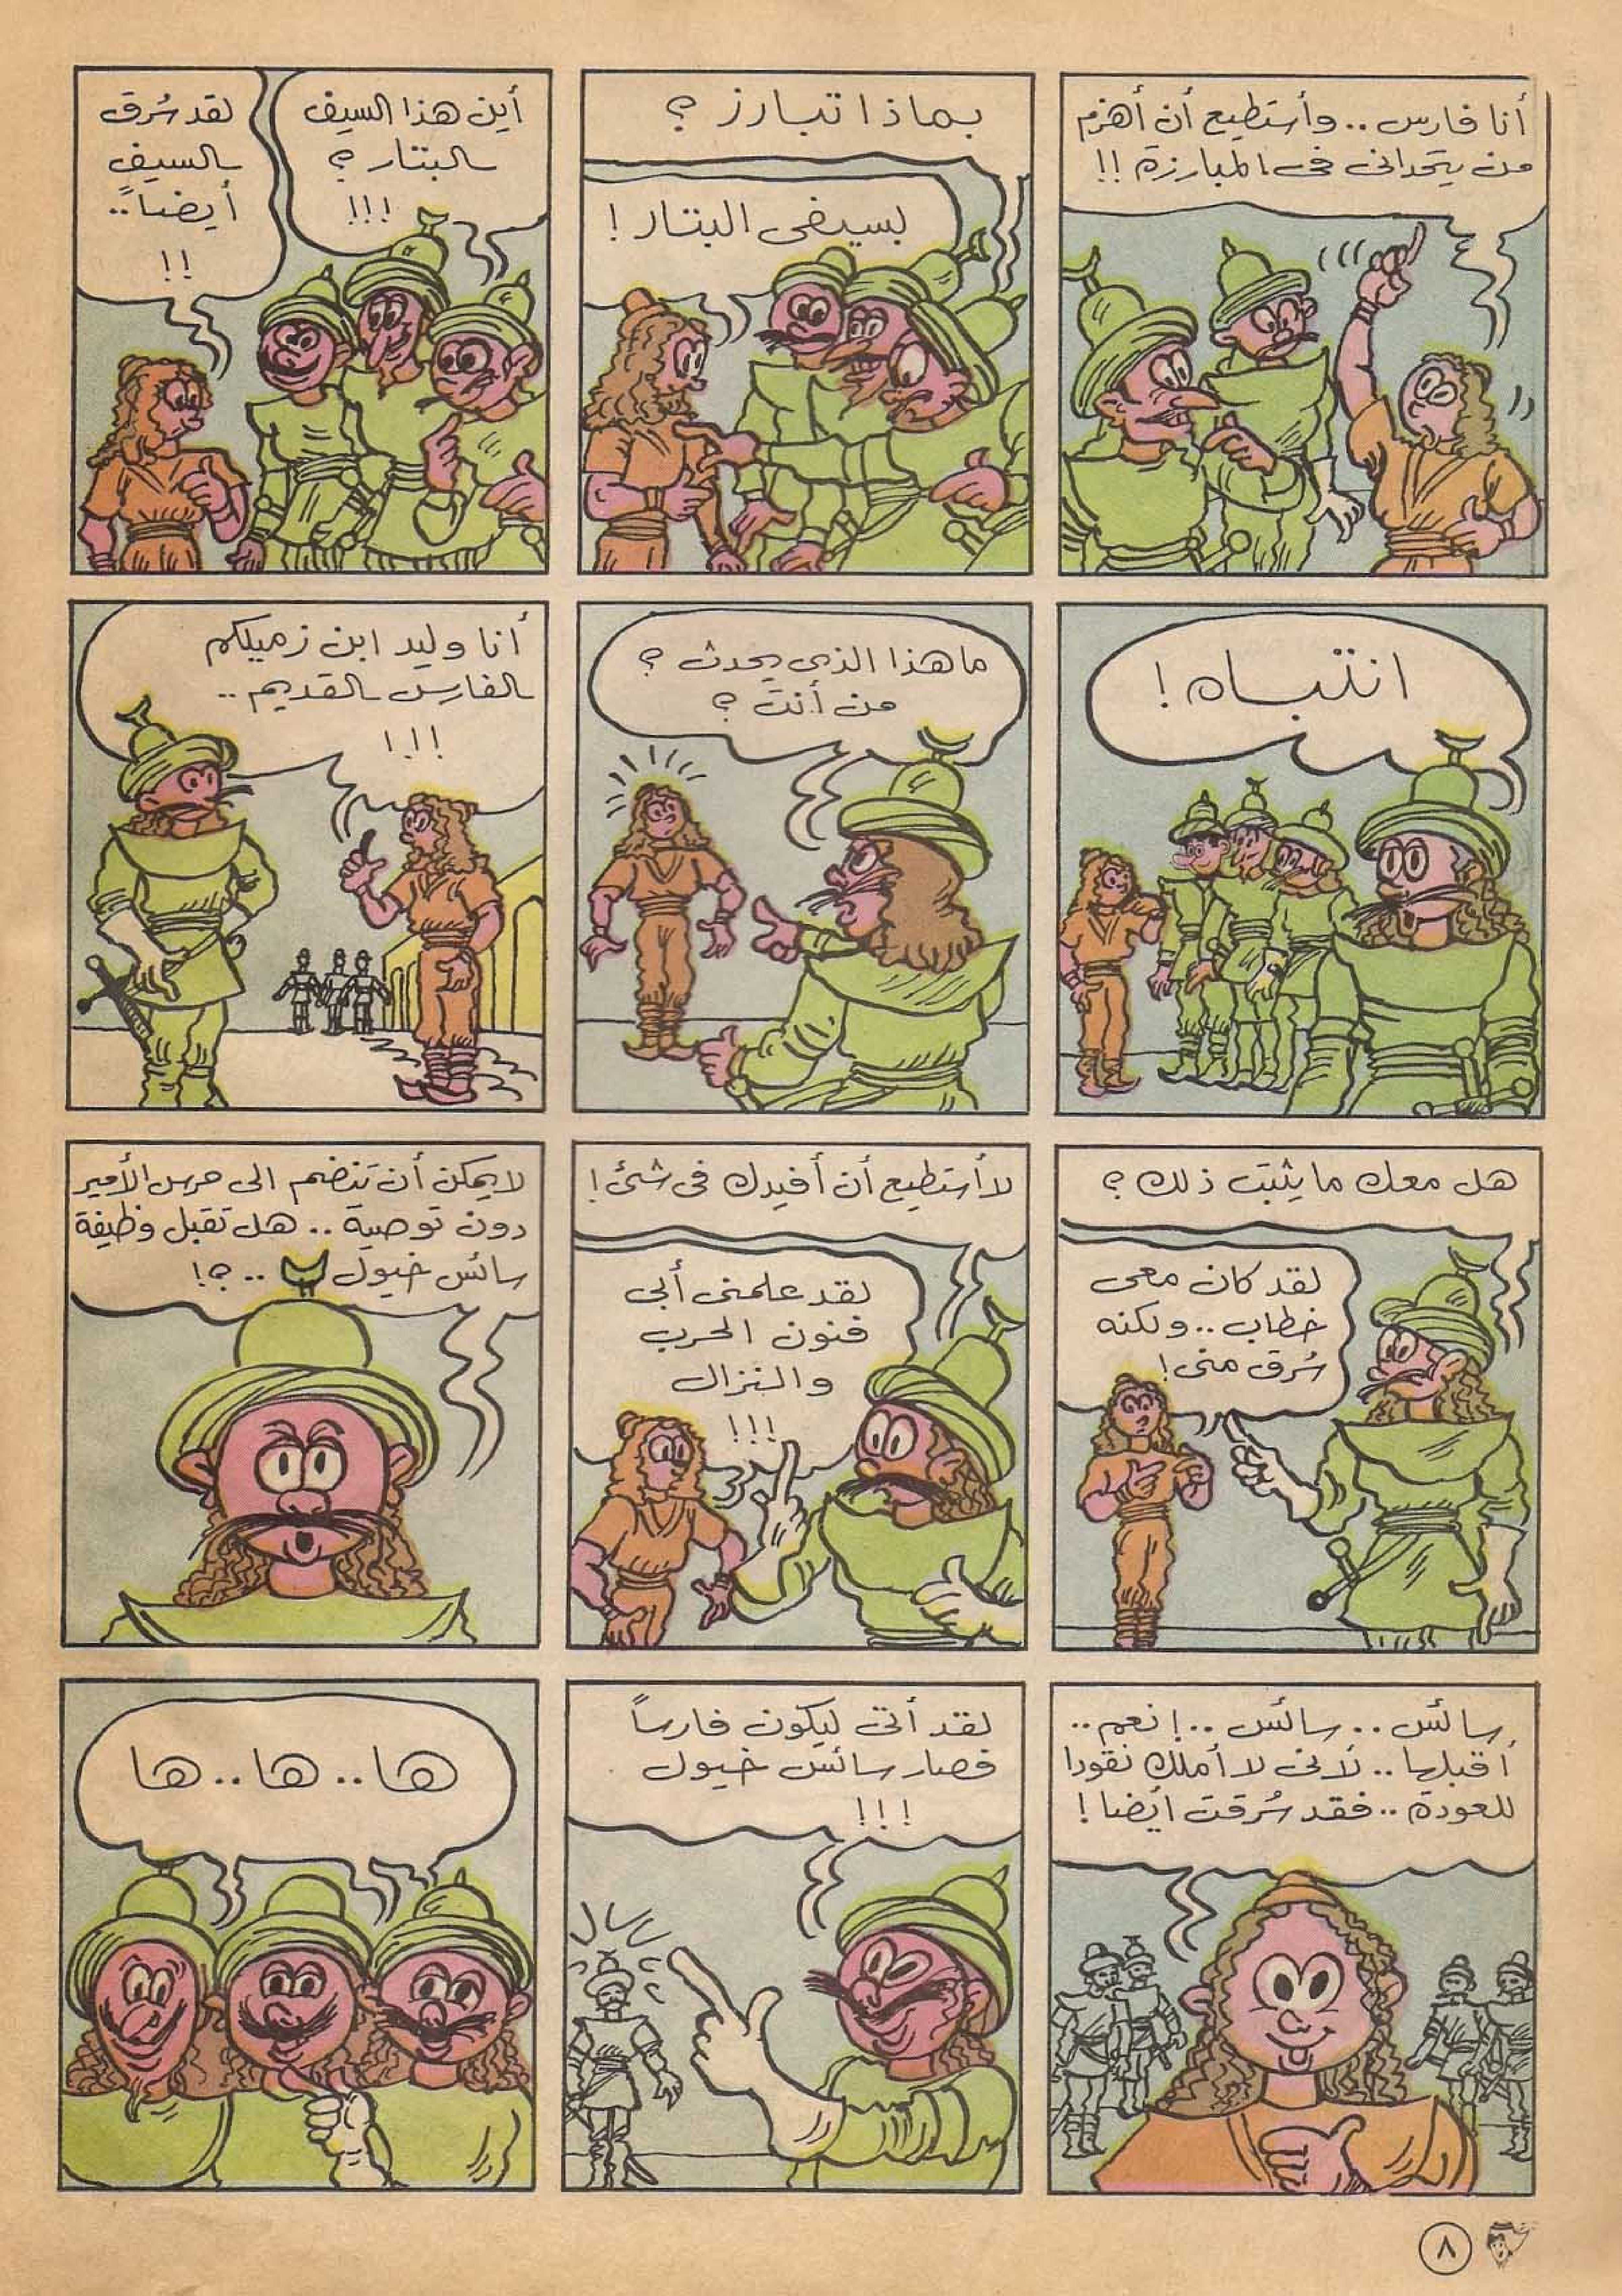 أنا فارس .. وأستطيع أن أهزم
من يتحدانى فى المبارزة !!
بماذا تبارز ؟
بسيفى البتار !
أين هذا السيف
البتار ؟
!!!
لقد سُرق
السيف
أيضاً ..
!!
انتباه !
ما هذا الذى يحدث ؟
من أنت ؟
أنا وليد ابن زميلكم
الفارس القديم ..
!!!
هل معك ما يثبت ذلك ؟
لقد كان معى
خطاب .. ولكنه
سُرق منى !
لا أستطيع أن أفيدك فى شئ !
لقد علمنى أبى
فنون الحرب
والنزال
!!!
لا يمكن أن تنضم الى حرس الأمير
دون توصية .. هل تقبل وظيفة
سائس خيول .. ؟!
سائس .. سائس .. ! نعم ..
أقبلها .. لأنى لا أملك نقودا
للعودة .. فقد سُرقت ايضا !
لقد أتى ليكون فارساً
فصار سائس خيول
!!!
ها .. ها .. ها
٨